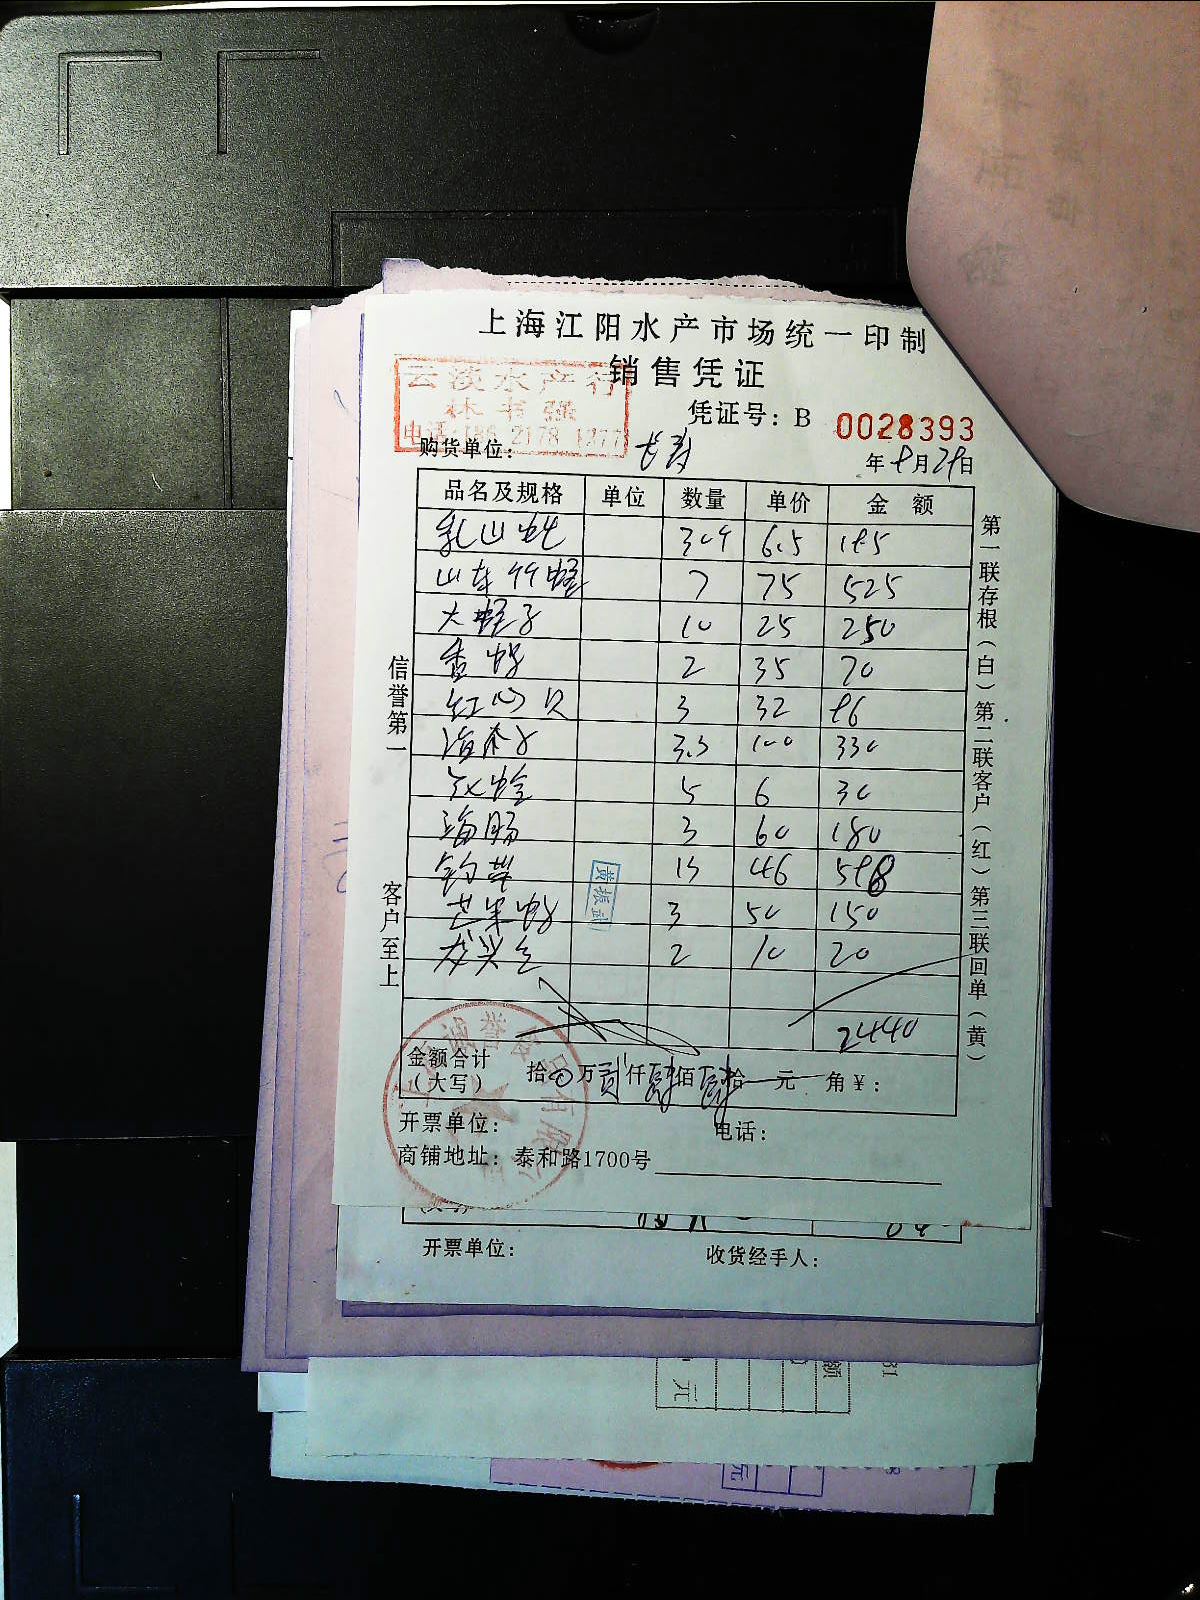 上海江阳水产市场统一印制
销售凭证
云淡水产行
林书强
电话:186 2178 1277
凭证号: B 0028393
购货单位: 长寿
年 月29日
品名及规格 单位 数量 单价 金 额
乳山蚝 6.5 195
山东竹蛏 7 75 525
大蛏子 10 25 250
香螺 2 35 70
红心贝 3 32 96
3.3 100 330
花蛤 5 6 30
海肠 3 60 180
钓带 13 46 598
芒果螺 3 50 150
龙头鱼 2 10 20
黄振武
2440
金额合计
(大写) 拾 万贰仟肆佰肆拾 元 角¥:
开票单位: 电话:
商铺地址: 泰和路1700号
信誉第一
客户至上
第一联存根(白)第二联客户(红)第三联回单(黄)
开票单位: 收货经手人: